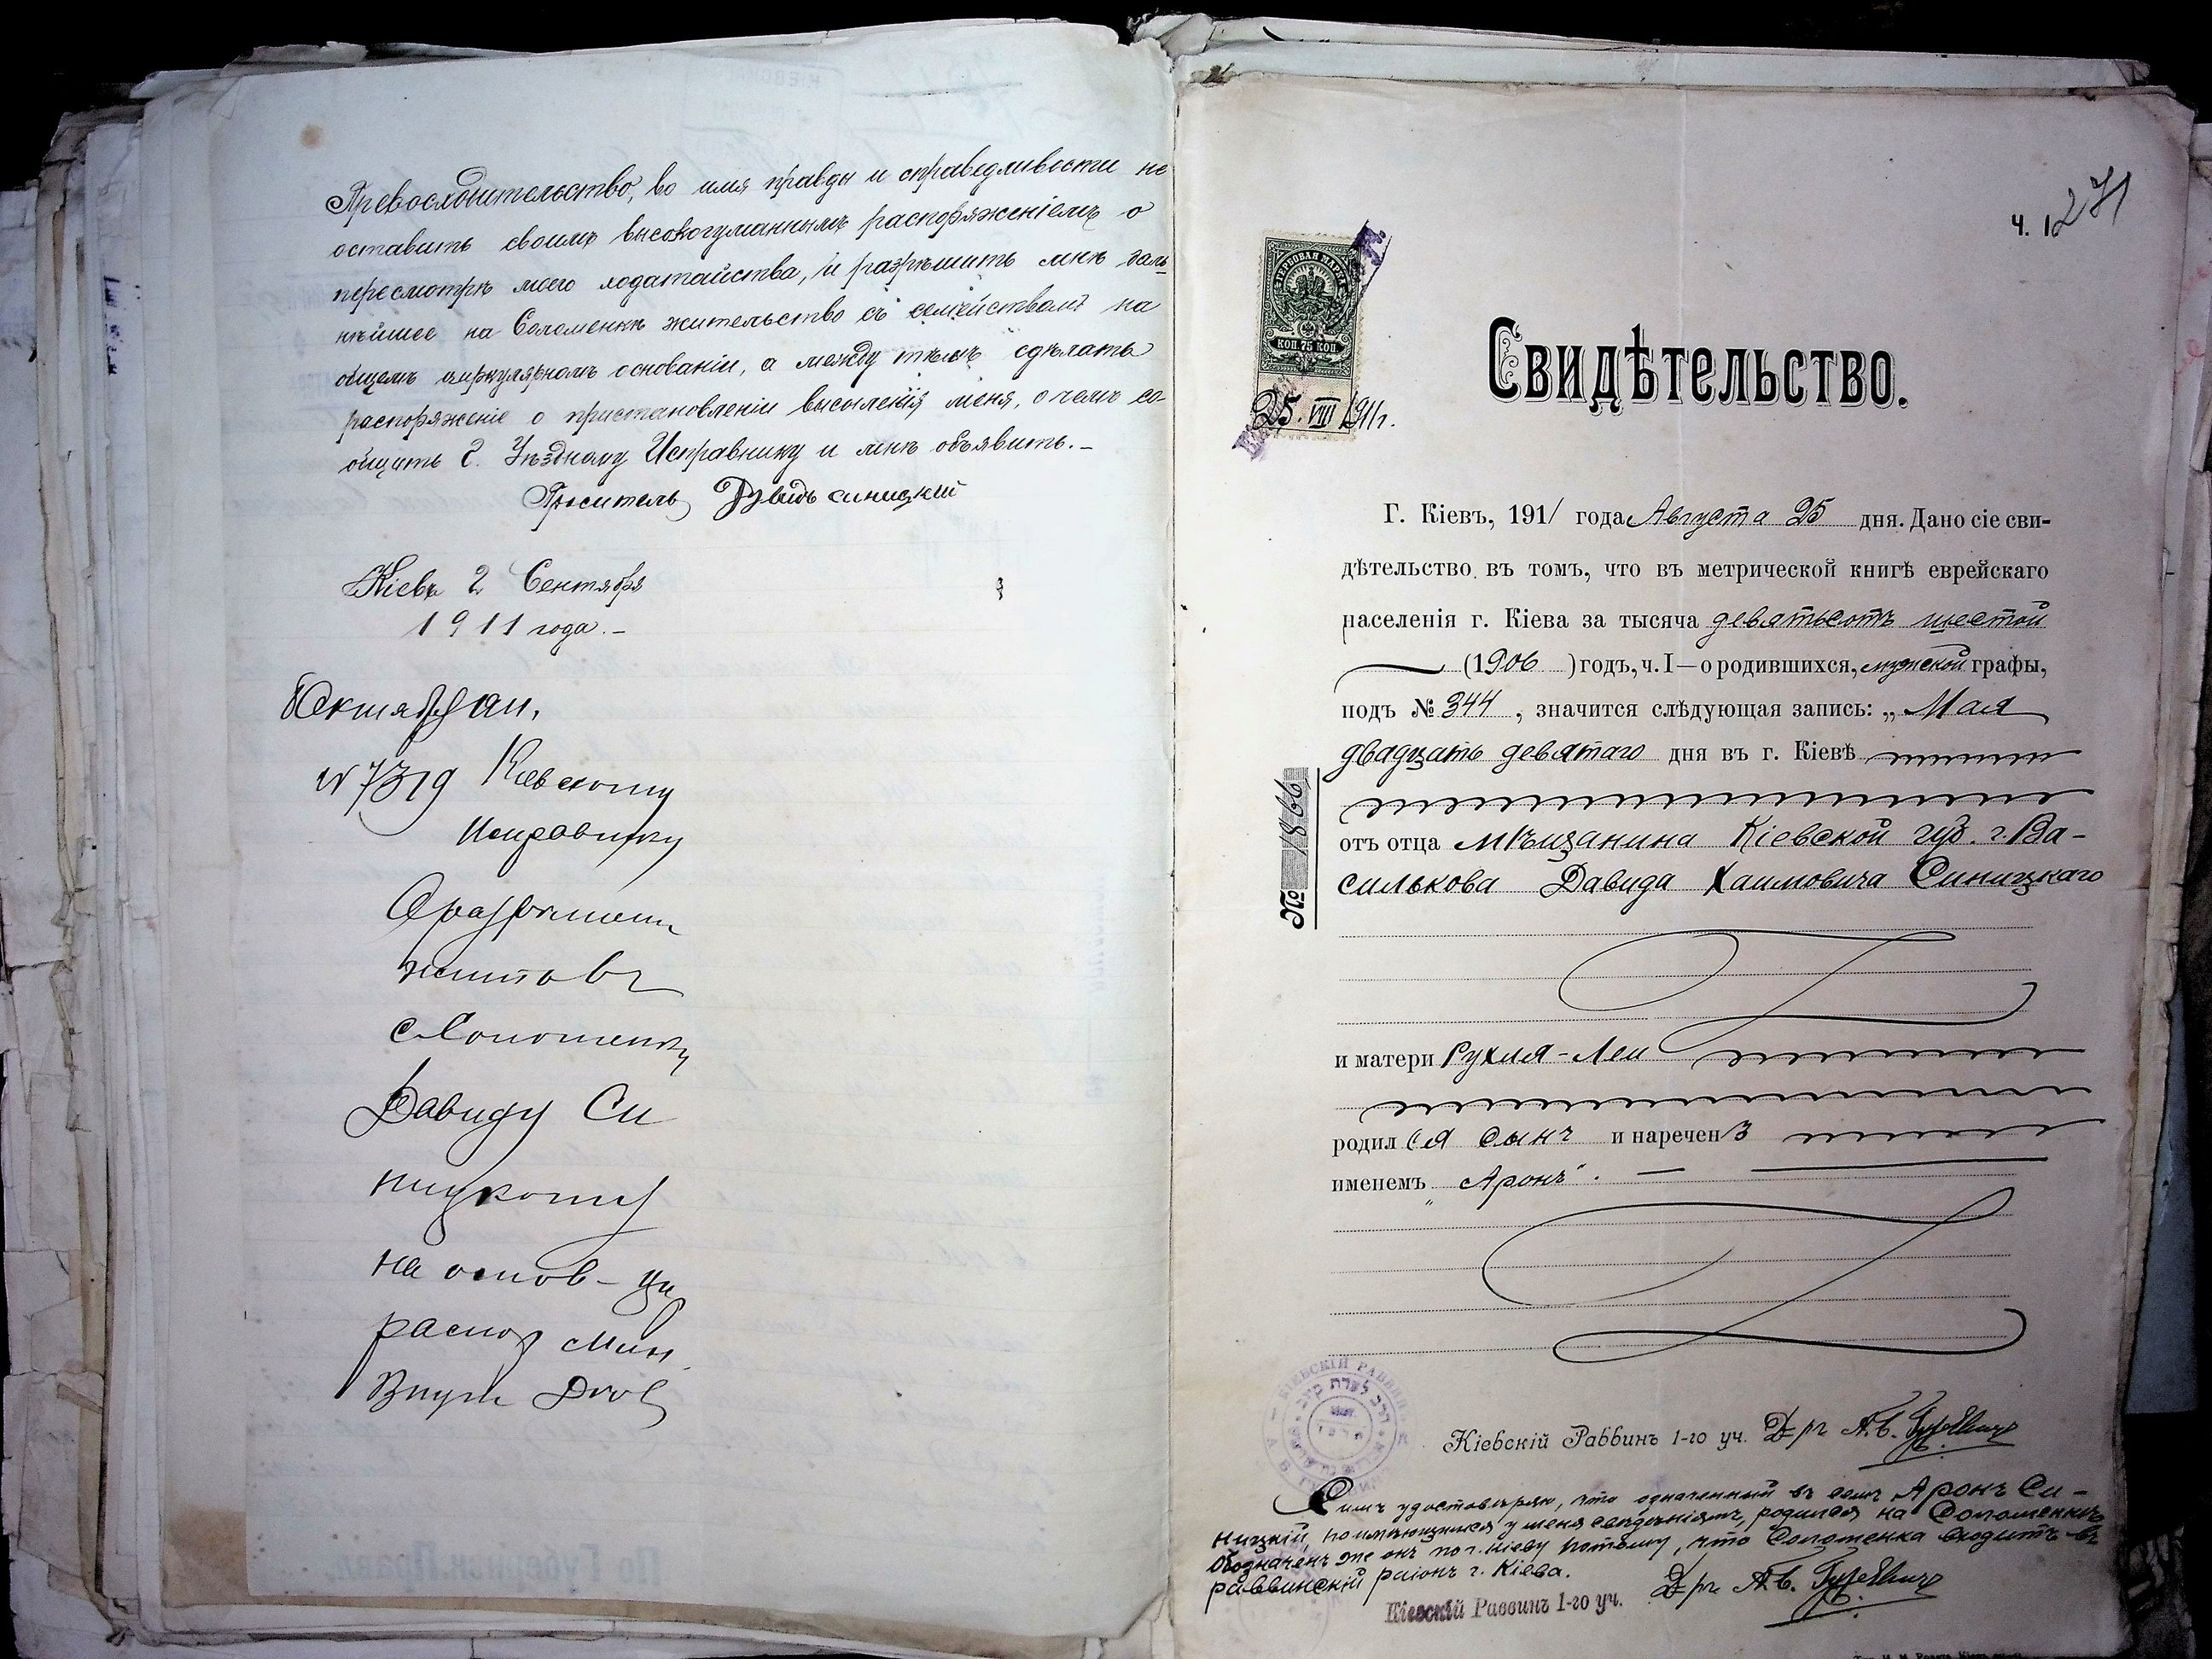 Превосходительство, во имя правды и справедливости не
оставить своимъ высокогуманнымъ распоряженіемъ о
пересмотрѣ моего ходатайства, и разрѣшить мнѣ даль-
нѣйшее на Соломенкѣ жительство съ семействомъ на
общемъ циркулярномъ основаніи, а между тѣмъ сдѣлать
распоряженіе о пристановленіи высыленія меня, о чемъ со-
общить Г. Уѣздному Исправнику и мнѣ объявить.-
Проситель Дувидъ Синицкій
Кіевъ 2 Сентября
1911 года.-
Октября
№ 7319 Кіевскому
Исправнику
О разрѣшеніи
жит въ
с Соломенку
Давиду Си
ницкому
на основ-
распор Мин.
Внутр Дѣлъ
ч. 1
271
ГЕРБОВАЯ МАРКА
КОП. 75 КОП.
25. VIII 1911г.
Свидѣтельство.
Г. Кіевъ, 1911 года Августа 25 дня. Дано сіе сви-
дѣтельство въ томъ, что въ метрической книгѣ еврейскаго
населенія г. Кіева за тысяча девятьсотъ шестой
(1906) годъ, ч. I—о родившихся, мужской графы,
подъ № 344, значится слѣдующая запись: „Мая
двадцать девятаго дня въ г. Кіевѣ
№ 1866
отъ отца мѣщанина Кіевской губ. г. Ва-
силькова Давида Хаимовича Синицкаго
и матери Рухля-Леи
родился сынъ и нареченъ
именемъ „Аронъ".
КІЕВСКІЙ РАВВИНЪ
Кіевскій Раввинъ 1-го уч. Д-ръ А.Б. Гуревичъ
Симъ удостовѣряю, что означенный въ семъ Аронъ Си-
ницкій, по имѣющимся у меня свѣдѣніямъ, родился на Соломенкѣ
Обозначенъ же онъ по г. Кіеву потому, что Соломенка входитъ въ
раввинскій раіонъ г. Кіева.
Кіевскій Раввинъ 1-го уч. Д-ръ А.Б. Гуревичъ